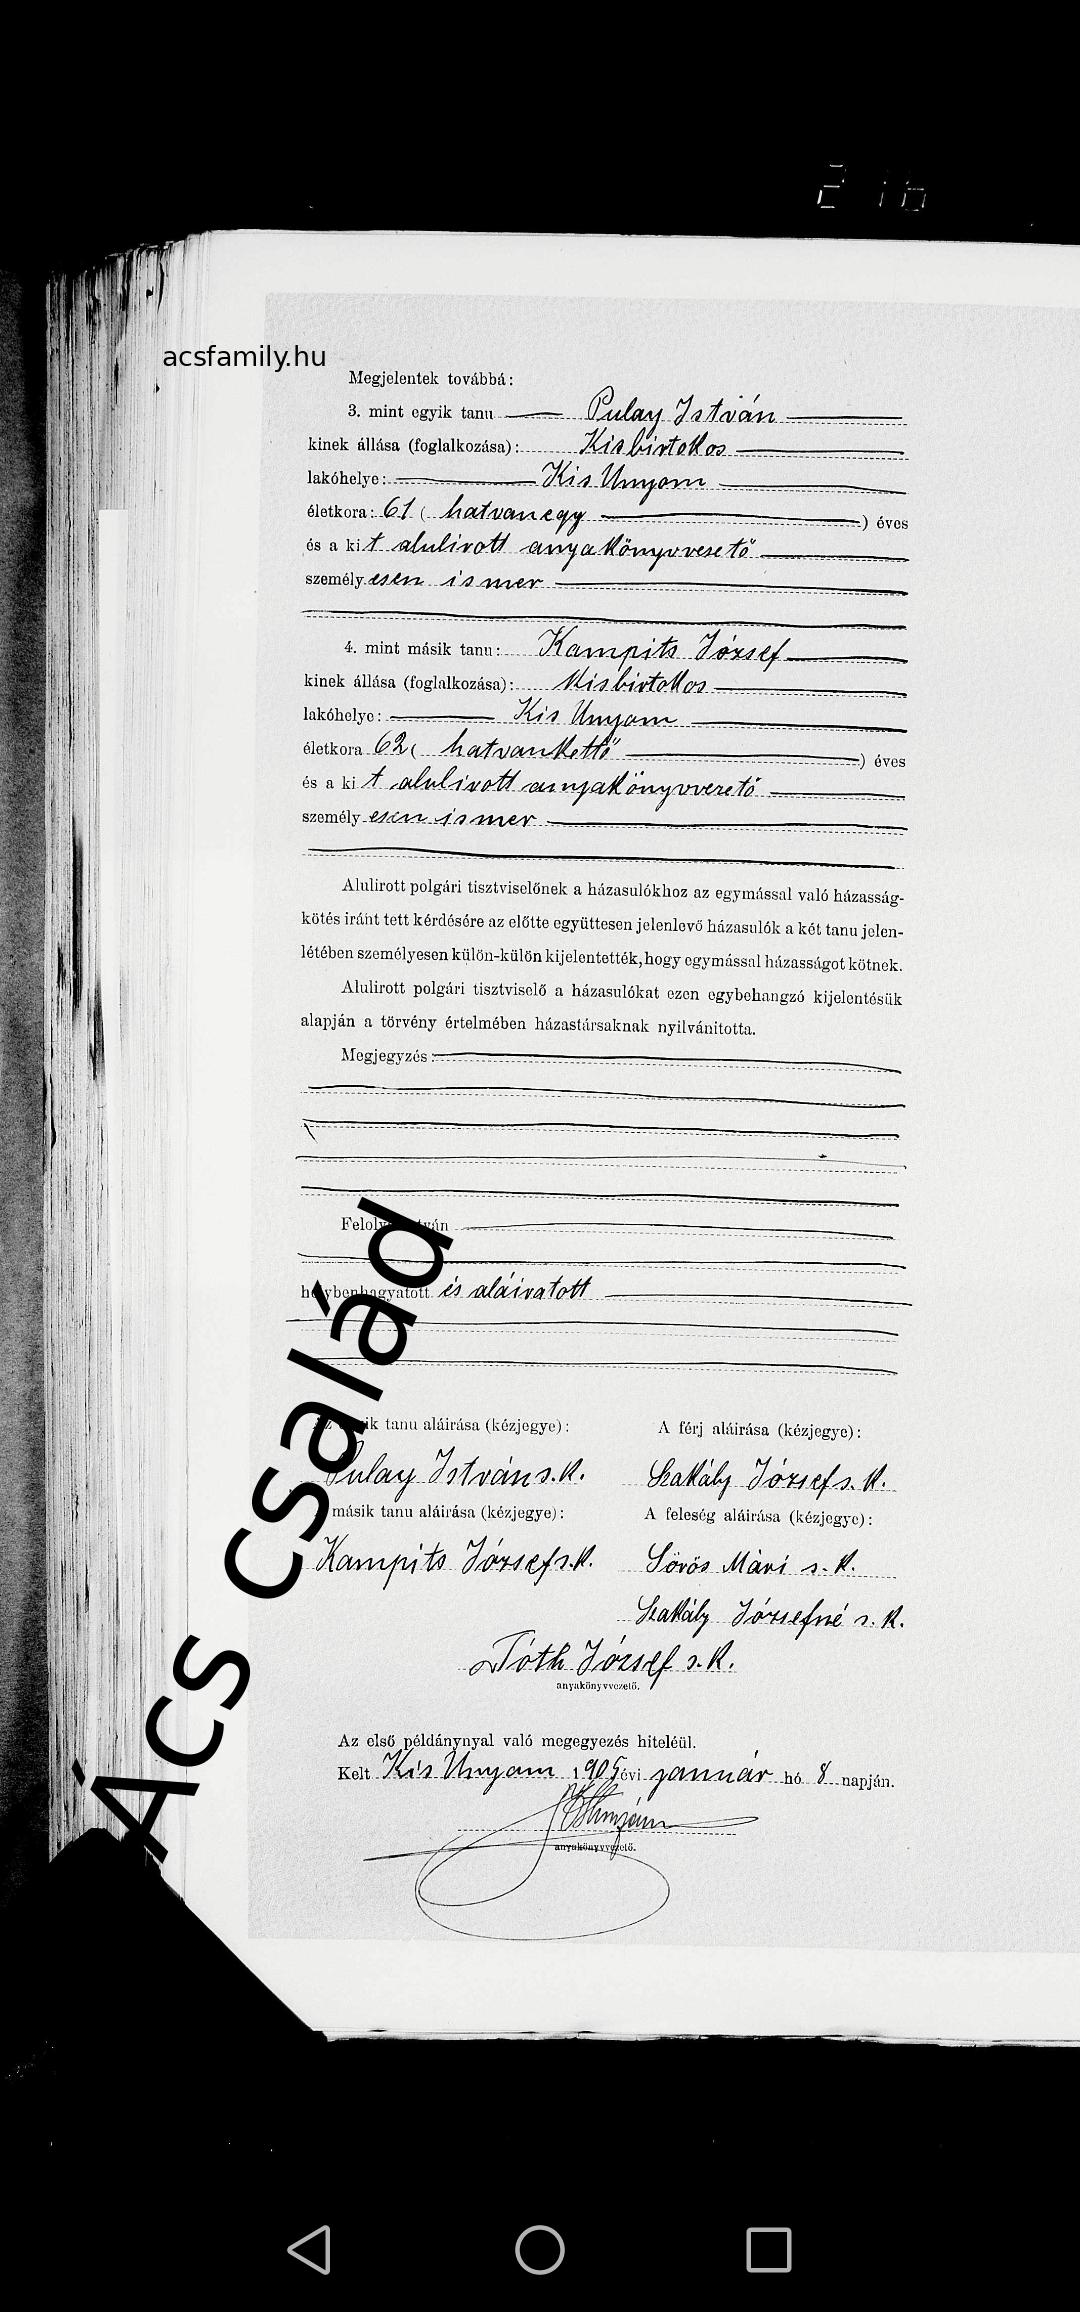 216
acsfamily.hu
Megjelentek továbbá:
3. mint egyik tanu Pulay István
kinek állása (foglalkozása): Kisbirtokos
lakóhelye: Kis Unyom
életkora: 61 ( hatvanegy ) éves
és a kit alulirott anyakönyvvezető
személyesen ismer
4. mint másik tanu: Kampits József
kinek állása (foglalkozása): Kisbirtokos
lakóhelye: Kis Unyom
életkora 62 ( hatvankettő ) éves
és a kit alulirott anyakönyvvezető
személyesen ismer
Alulirott polgári tisztviselőnek a házasulókhoz az egymással való házasság-
kötés iránt tett kérdésére az előtte együttesen jelenlevő házasulók a két tanu jelen-
létében személyesen külön-külön kijelentették, hogy egymással házasságot kötnek.
Alulirott polgári tisztviselő a házasulókat ezen egybehangzó kijelentésük
alapján a törvény értelmében házastársaknak nyilvánitotta.
Megjegyzés:
Felolvastatván
helybenhagyatott és aláiratott
Ács család
Az egyik tanu aláirása (kézjegye): A férj aláirása (kézjegye):
Pulay István s. k. Szakály József s. k.
másik tanu aláirása (kézjegye): A feleség aláirása (kézjegye):
Kampits József s. k. Sörös Mári s. k.
Szakály Józsefné s. k.
Tóth József s. k.
anyakönyvvezető.
Az első példánynyal való megegyezés hiteléül.
Kelt Kis Unyom 1905 évi január hó 8 napján.
anyakönyvvezető.